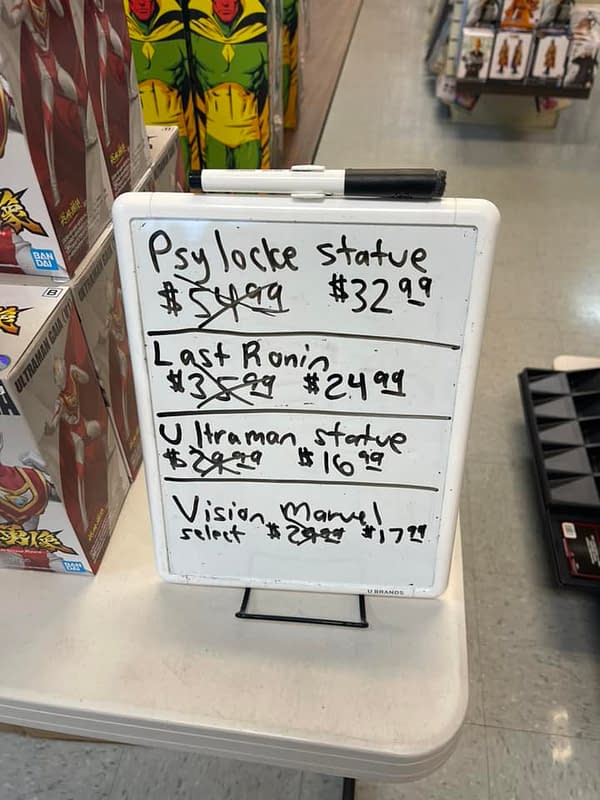 Psylocke statue
$54.99 $32.99
Last Ronin
$35.99 $24.99
Ultraman statue
$29.99 $16.99
Vision Marvel
select $29.99 $17.99
U BRANDS
BAN
DAI
ULTRAMAN GAIA (V
BAN
DAI